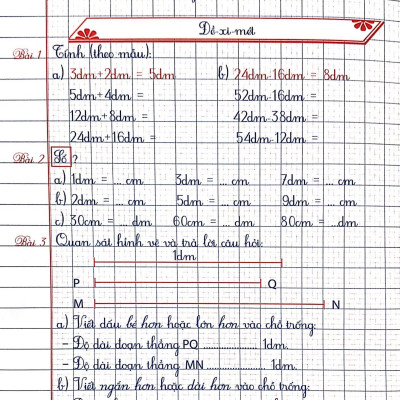 Đề-xi-mét
Bài 1 Tính (theo mẫu):
a) 3dm+2dm = 5dm b) 24dm-16dm = 8dm
5dm+4dm = 52dm-16dm =
12dm+8dm = 42dm-38dm =
24dm+16dm = 54dm-12dm =
Bài 2 Số ?
a) 1dm = ... cm 3dm = ... cm 7dm = ... cm
b) 2dm = ... cm 5dm = ... cm 9dm = ... cm
c) 30cm = ... dm 60cm = ... dm 80cm = ...dm
Bài 3 Quan sát hình vẽ và trả lời câu hỏi:
1dm
P Q
M N
a) Viết dấu bé hơn hoặc lớn hơn vào chỗ trống:
- Độ dài đoạn thẳng PQ .................. 1dm.
- Độ dài đoạn thẳng MN .................. 1dm.
b) Viết ngắn hơn hoặc dài hơn vào chỗ trống: